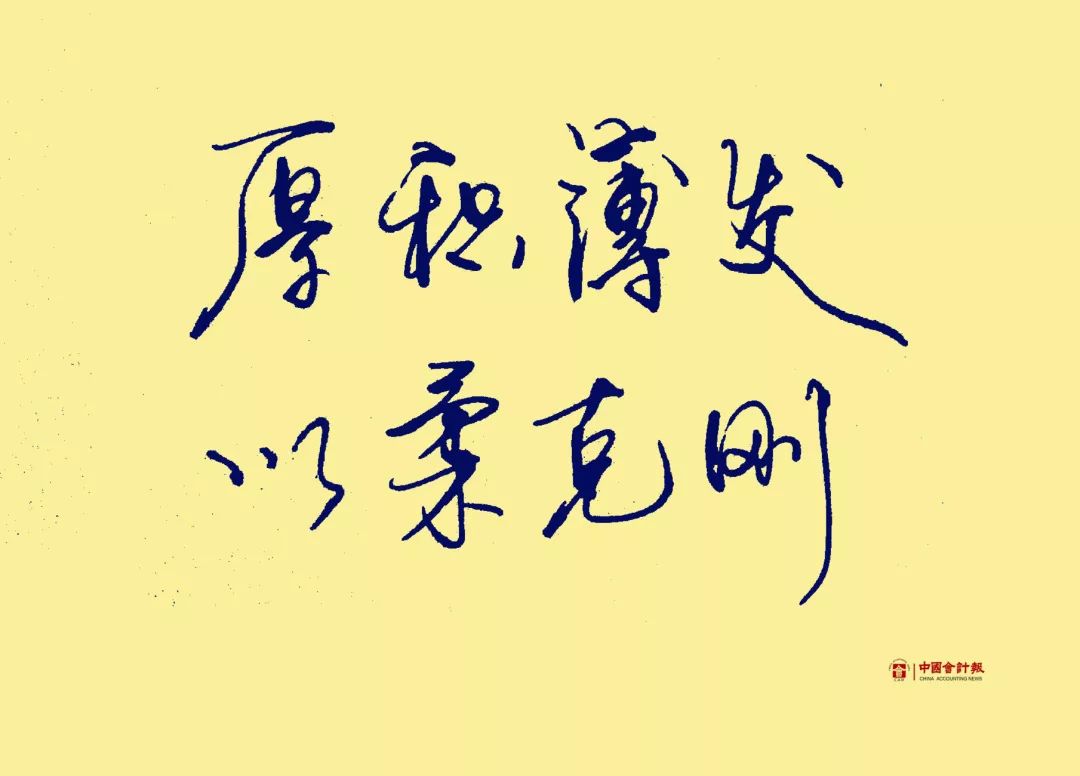 厚积薄发
以柔克刚
中國會計報
CHINA ACCOUNTING NEWS